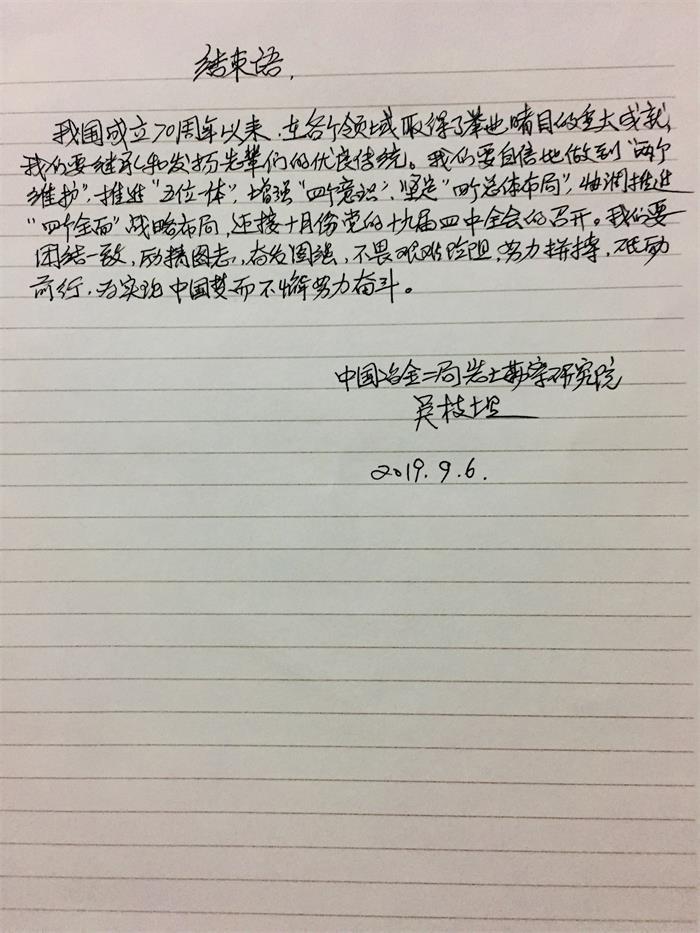 结束语,
我国成立70周年以来,在各个领域取得了举世瞩目的重大成就,
我们要继承和发扬先辈们的优良传统。我们要自信地做到“两个
维护”,推进“五位一体”,增强“四个意识”,坚定“四个总体布局”,协调推进
“四个全面”战略布局,迎接十月份党的十九届四中全会的召开。我们要
团结一致,励精图志,奋发图强,不畏艰难险阻,努力拼搏,砥励
前行,为实现中国梦而不懈努力奋斗。
中国冶金二局岩土勘察研究院
吴枝坦
2019.9.6.